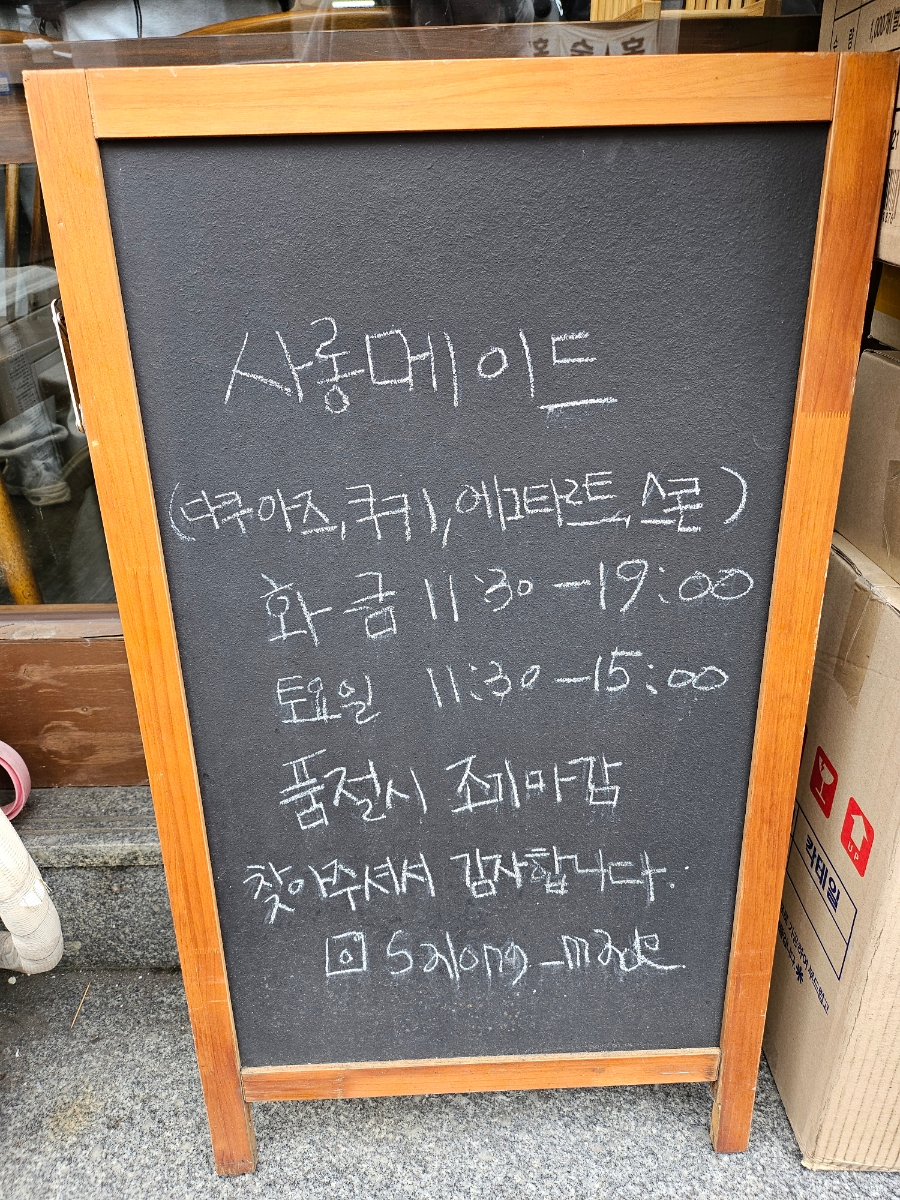 사롱메이드
(다쿠아즈, 쿠키, 에그타르트, 스콘)
화-금 11:30-19:00
토요일 11:30-15:00
품절시 조기마감
찾아주셔서 감사합니다.
salong_made
칵테일
UP
1,000개